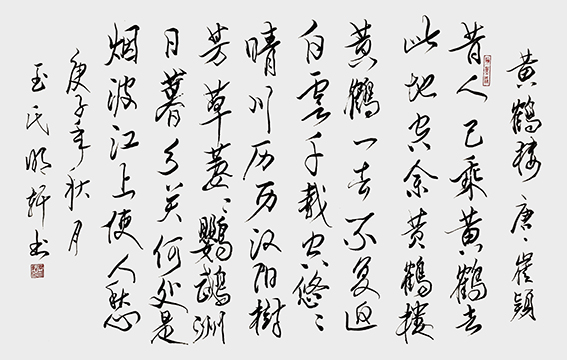 黄鶴楼 唐、崔颢
昔人已乘黄鶴去
此地空余黄鶴楼
黄鶴一去不复返
白雲千載空悠々
晴川历历汉阳樹
芳草萋々鸚鵡洲
日暮乡关何处是
烟波江上使人愁
庚子年秋月
玉氏明轩书